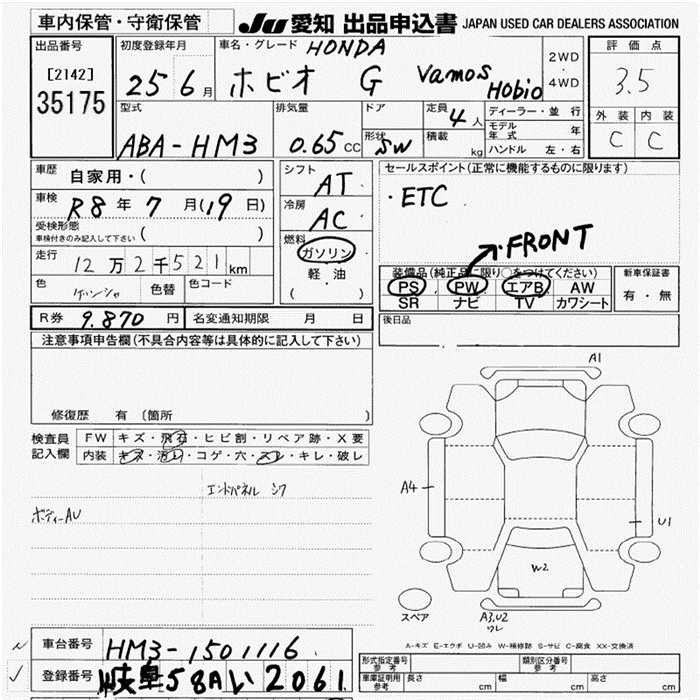 車内保管・守衛保管
JU 愛知 出品申込書 JAPAN USED CAR DEALERS ASSOCIATION
出品番号
[2142]
35175
初度登録年月
25 6月
車名・グレード HONDA
ホビオ G Vamos Hobio
2WD
・
4WD
評価点
3.5
外装 内装
C C
型式
ABA-HM3
排気量
0.65 CC
ドア
形状 SW
定員 4人
積載 kg
ディーラー・並行
モデル年式 年
ハンドル 左・右
車歴 自家用・( )
車検 R8年 7月(19日)
受検形態
車検付きのみ記入して下さい ( )
走行 12万2千521km
色 色替 色コード
シフト
AT
冷房
AC
燃料
ガソリン
・
軽・油
( )
セールスポイント(正常に機能するものに限ります)
・ETC
FRONT
装備品(純正品に限り○をつけてください)
PS PW エアB AW
SR ナビ TV カワシート
新車保証書
有・無
R券 9.870円 名変通知期限 月 日
後日品
注意事項申告欄(不具合内容等は具体的に記入して下さい)
修復歴 有 (箇所 )
検査員記入欄
FW キズ・飛石・ヒビ割・リペア跡・X要
内装 キズ・汚れ・コゲ・穴・スレ・キレ・破レ
エンドパネル シワ
ボディーAU
A1
A4
U1
W2
A3,U2
ワレ
スペア
A-キズ E-エクボ U-凹み W-補修跡 S-サビ C-腐食 XX-交換済
車台番号 HM3-1501116
登録番号 岐阜58Aい2061
形式指定番号 参考
類別区分番号 参考
車庫証明用 参考 長さ cm 幅 cm 高さ cm